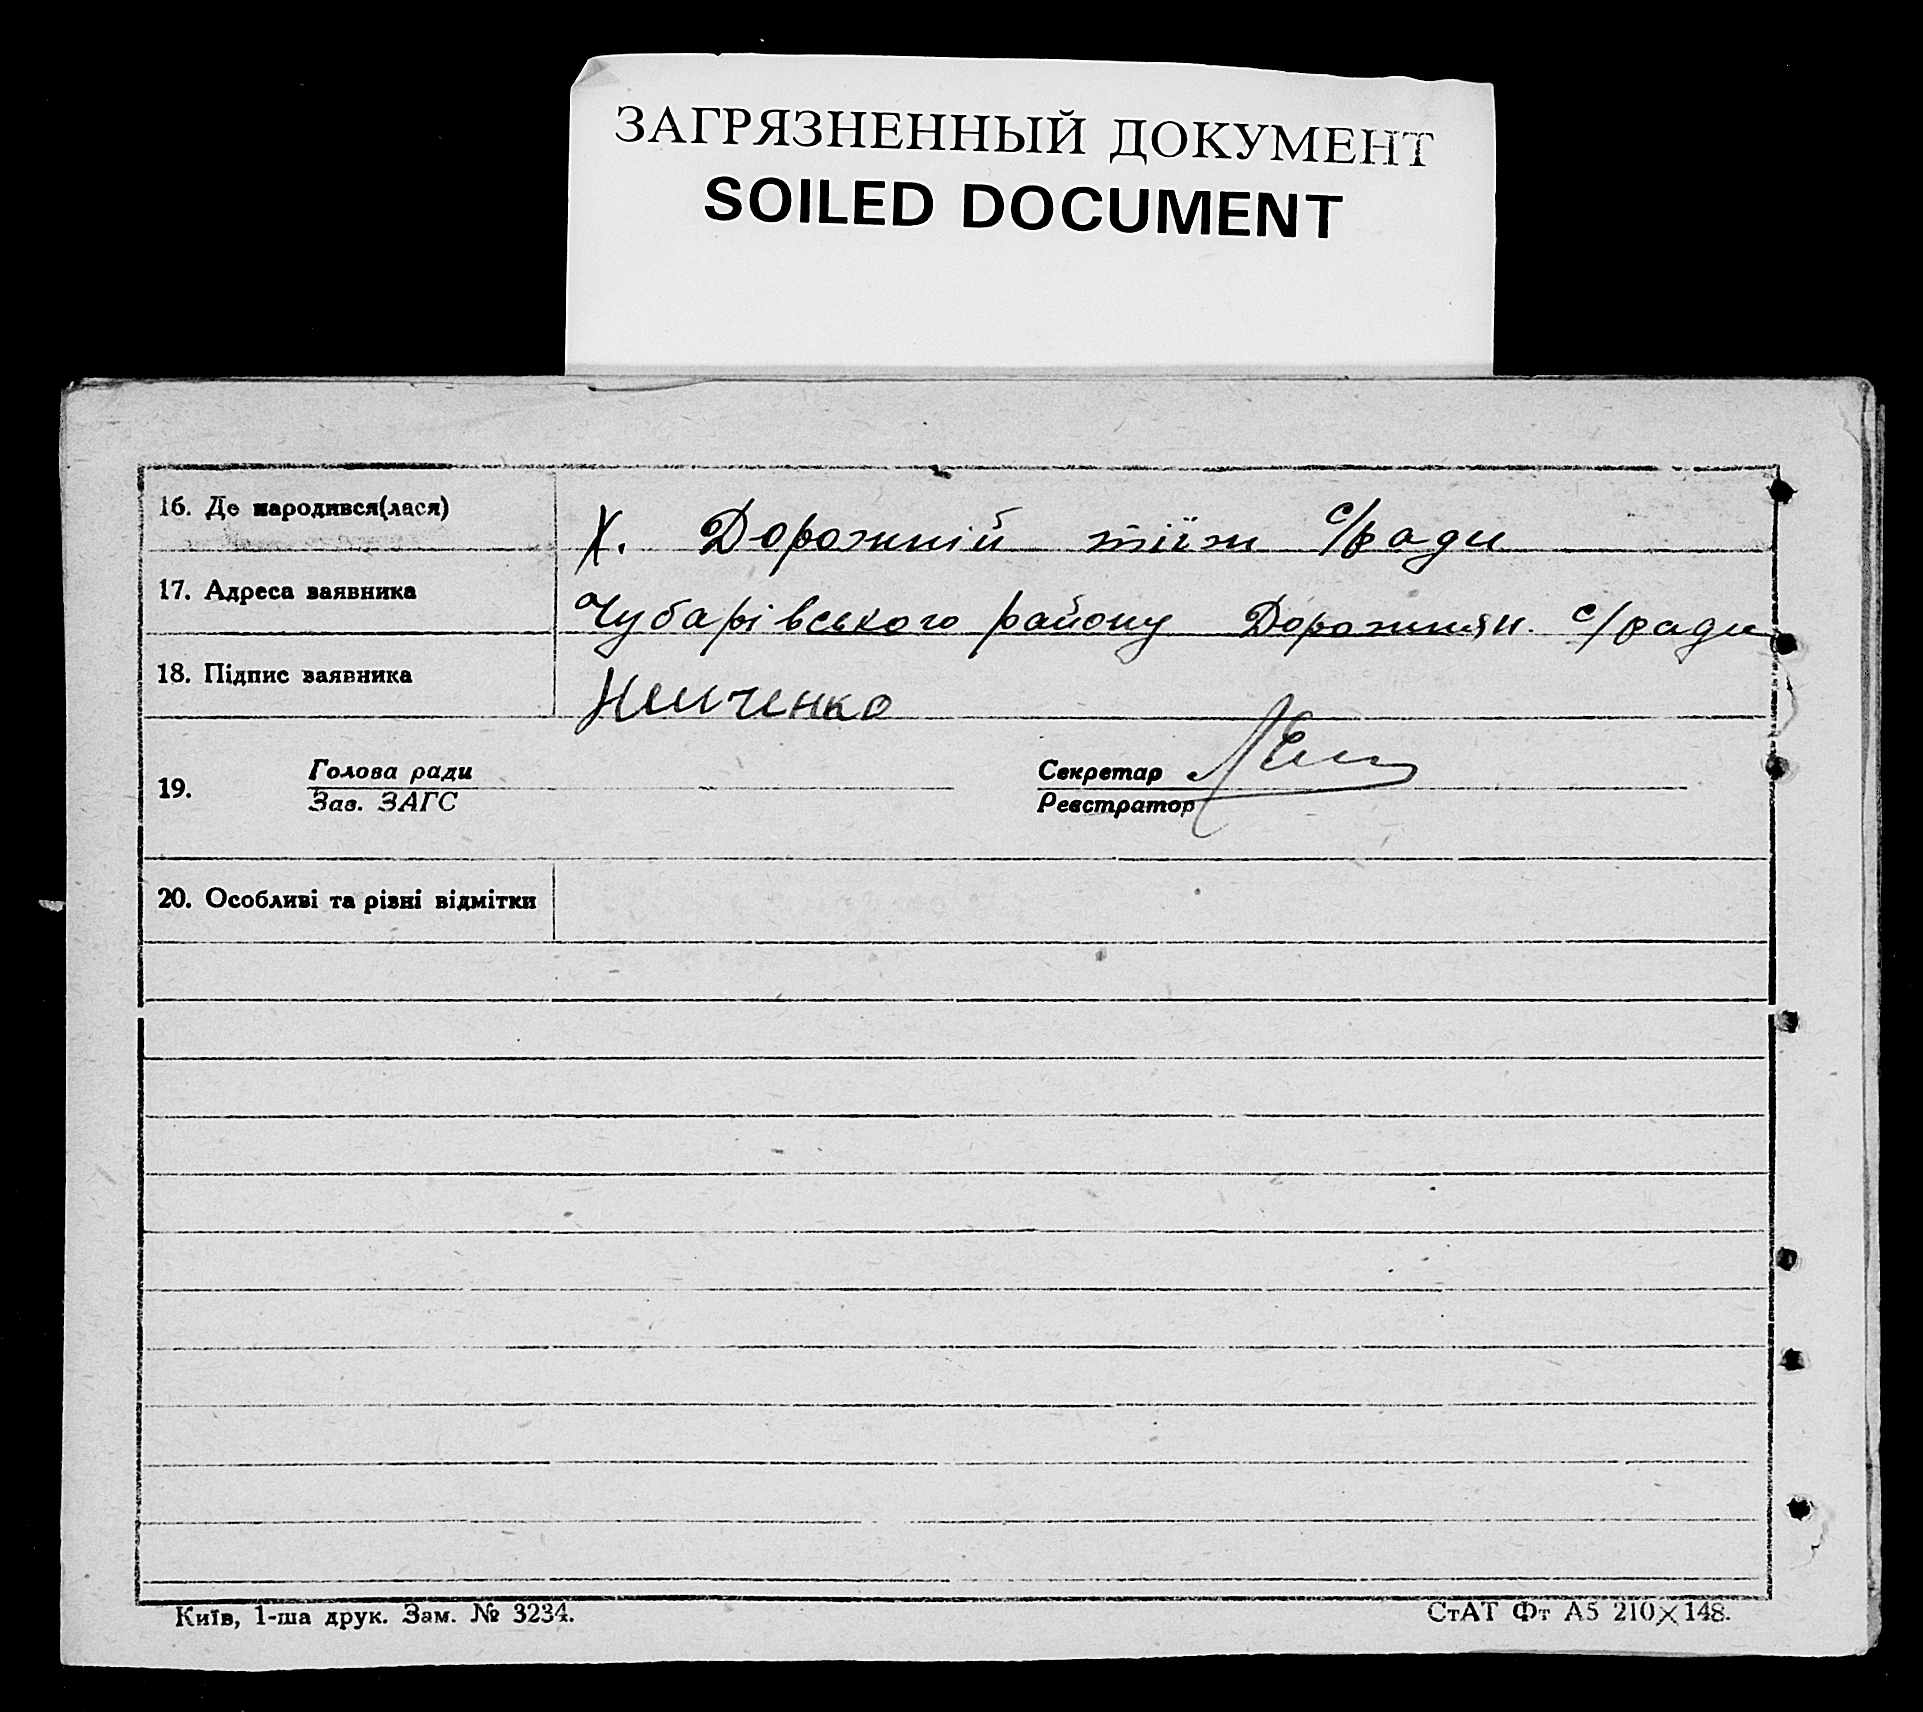 ЗАГРЯЗНЕННЫЙ ДОКУМЕНТ
SOILED DOCUMENT
16. Де народився(лася)
Х. Дорожній тіїж с/ради
17. Адреса заявника
Чубарівського району Дорожнян. с/ради
18. Підпис заявника
Немченко
19.
Голова ради
Зав. ЗАГС
Секретар
Реєстратор
20. Особливі та різні відмітки
Київ, 1-ша друк. Зам. № 3234.
СтАТ Фт А5 210×148.